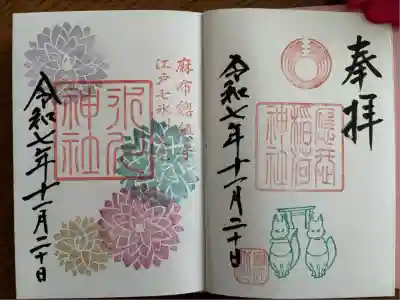 麻布總鎮守
江戸七氷川
氷川
神社
令和七年十一月二十日
奉拝
稲荷
神社
令和七年十一月二十日